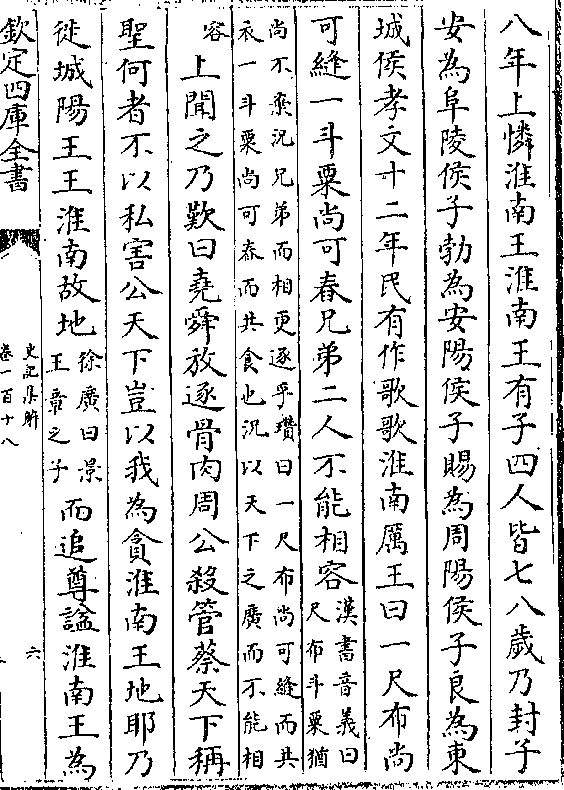 八年上憐淮南王淮南王有子四人皆七八歲乃封子
安為阜陵侯子勃為安陽侯子賜為周陽侯子良為東
城侯孝文十二年民有作歌歌淮南厲王曰一尺布尚
可縫一斗粟尚可舂兄弟二人不能相容漢書音義曰尺布斗粟猶
尚不棄況兄弟而相更逐乎瓚曰一尺布尚可縫而共
衣一斗粟尚可舂而共食也況以天下之廣而不能相
容上聞之乃歎曰堯舜放逐骨肉周公殺管蔡天下稱
聖何者不以私害公天下豈以我為貪淮南王地耶乃
徙城陽王王淮南故地徐廣曰景王章之子而追尊諡淮南王為
欽定四庫全書
史記集解
卷一百十八
六